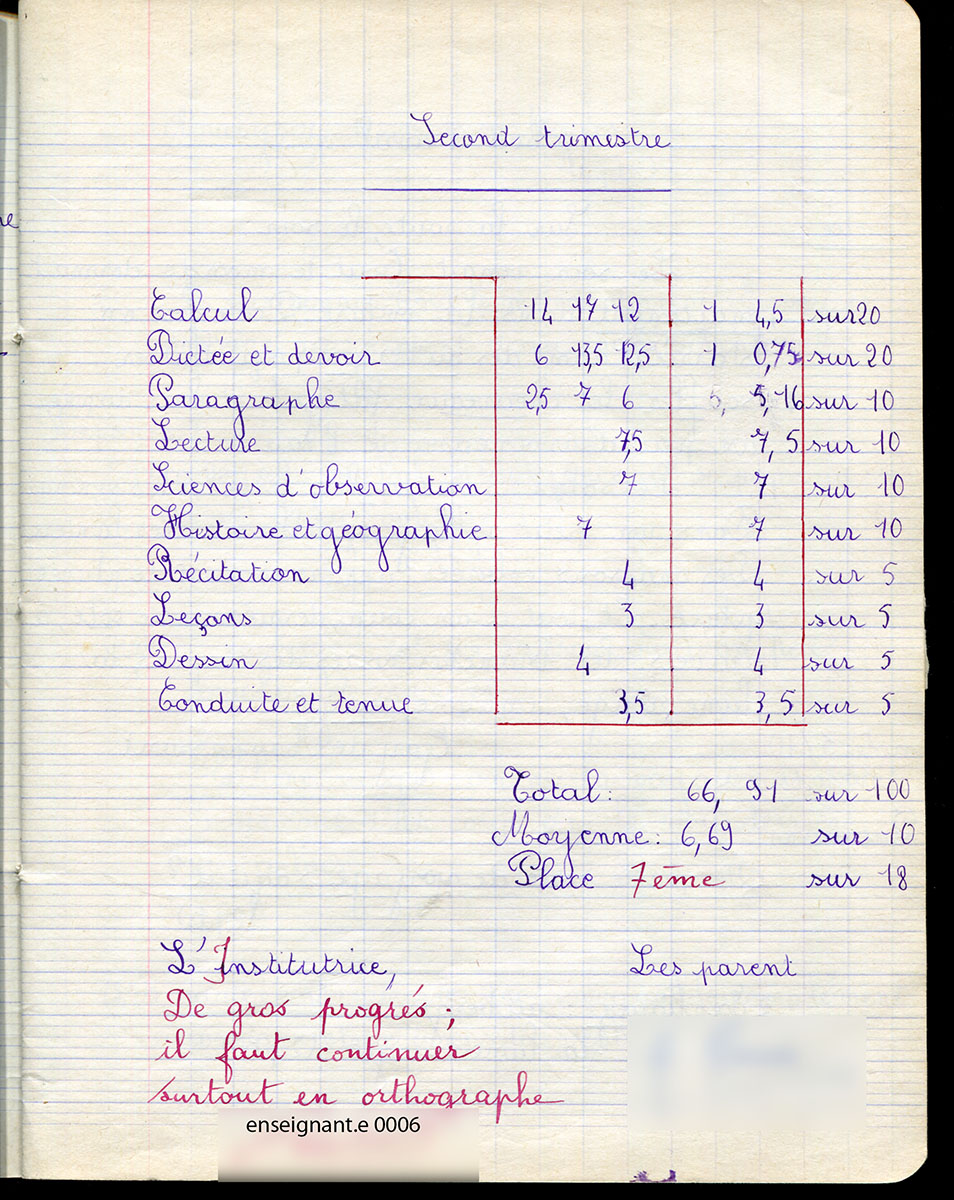 Second trimestre
Calcul 14 17 12 1 4,5 sur 20
Dictée et devoir 6 13,5 12,5 1 0,75 sur 20
Paragraphe 2,5 7 6 5, 5,16 sur 10
Lecture 7,5 7,5 sur 10
Sciences d'observation 7 7 sur 10
Histoire et géographie 7 7 sur 10
Récitation 4 4 sur 5
Leçons 3 3 sur 5
Dessin 4 4 sur 5
Conduite et tenue 3,5 3,5 sur 5
Total: 66,91 sur 100
Moyenne: 6,69 sur 10
Place 7ème sur 18
L'Institutrice, Les parent
De gros progrés ;
il faut continuer
surtout en orthographe
enseignant.e 0006